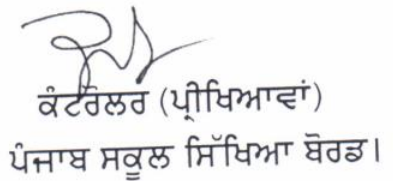 ਕੰਟਰੋਲਰ (ਪ੍ਰੀਖਿਆਵਾਂ)
ਪੰਜਾਬ ਸਕੂਲ ਸਿੱਖਿਆ ਬੋਰਡ।